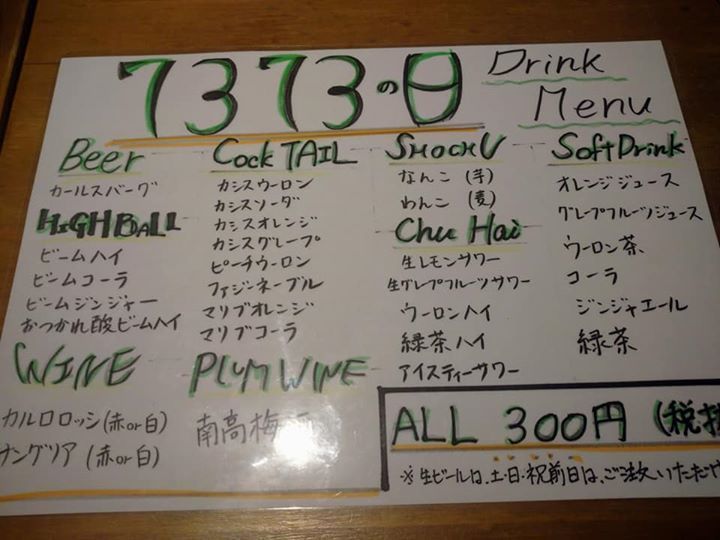 7373の日
Drink
Menu
Beer
カールスバーグ
HiGHBALL
ビームハイ
ビームコーラ
ビームジンジャー
おつかれ酸ビームハイ
WINE
カルロロッシ(赤or白)
ングリア(赤or白)
CockTAIL
カシスウーロン
カシスソーダ
カシスオレンジ
カシスグレープ
ピーチウーロン
ファジーネーブル
マリブオレンジ
マリブコーラ
PLUM WINE
南高梅
SHOCHU
なんこ(芋)
わんこ(麦)
Chu Hai
生レモンサワー
生グレプフルーツサワー
ウーロンハイ
緑茶ハイ
アイスティーサワー
Soft Drink
オレンジジュース
グレープフルーツジュース
ウーロン茶
コーラ
ジンジャエール
緑茶
ALL 300円(税抜
※生ビールは、土・日・祝前日は、ご注文いただけ